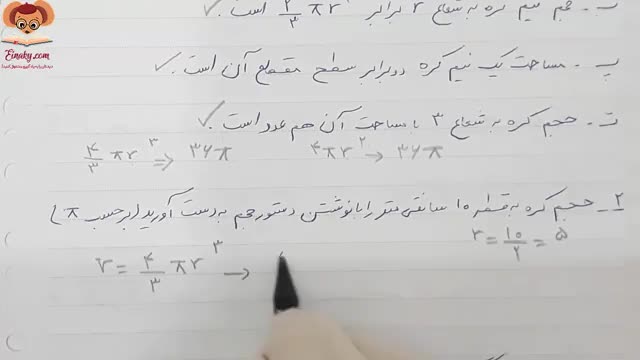 Einaky.com
ب - حجم نیم کره به شعاع r برابر ۲/۳ πr³ است ✓
پ - مساحت یک نیم کره دو برابر سطح مقطع آن است ✓
ت - حجم کره به شعاع ۳ با مساحت آن هم عدد است ✓
۴/۳ πr³ ⇒ ۳۶π    ۴πr² → ۳۶π
۲ - حجم کره به قطر ۱۰ سانتی متر را با نوشتن دستور حجم به دست آورید (بر حسب π)
r = ۱۰/۲ = ۵
V = ۴/۳ πr³ →